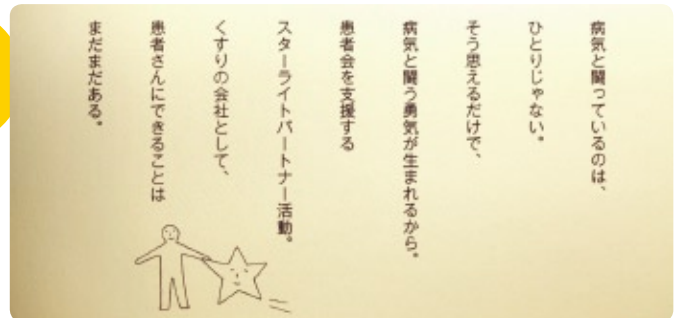 病気と闘っているのは、
ひとりじゃない。
そう思えるだけで、
病気と闘う勇気が生まれるから。
患者会を支援する
スターライトパートナー活動。
くすりの会社として、
患者さんにできることは
まだまだある。